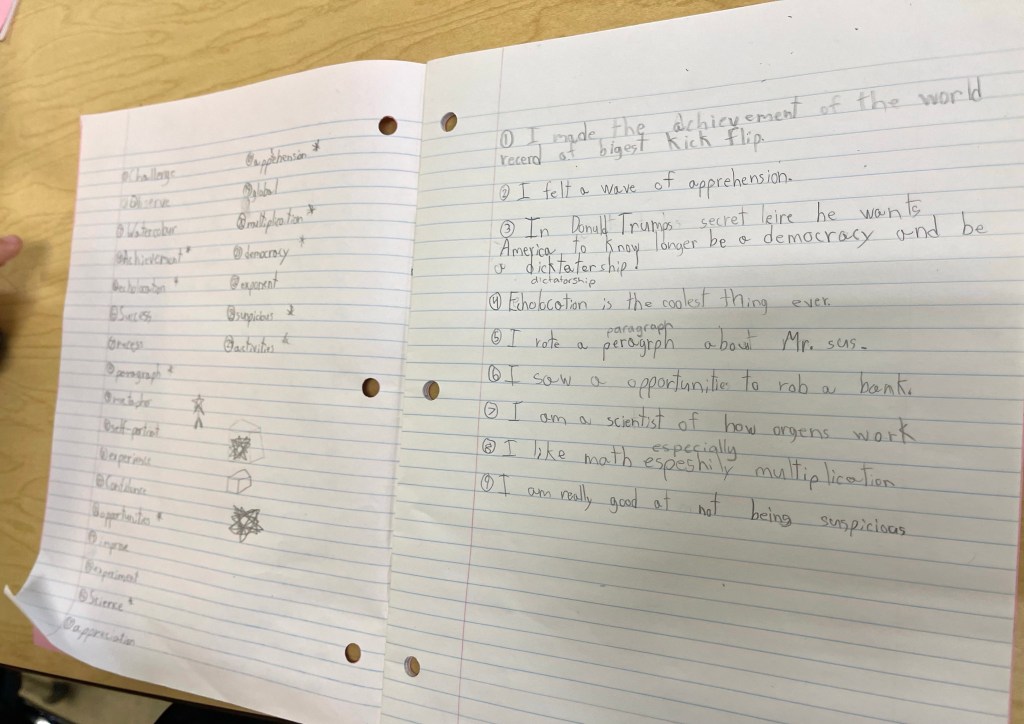 Challenge
Observe
Watercolor
Achievement *
echolocation *
Success
process
paragraph *
metaphor
self-portrait
experience
Confidence
opportunities *
improve
experiment
Science *
appreciation
apprehension *
global
multiplication *
democracy *
exponent
suspicious *
activities *
① I made the achievement of the world
recerd at bigest kick flip.
② I felt a wave of apprehension.
③ In Donald Trumps secret leire he wants
America to know longer be a democracy and be
a dicktatership!
dictatorship
④ Echolocation is the coolest thing ever.
paragraph
⑤ I rote a peragrph about Mr. sus.
⑥ I saw a opportunitie to rob a bank.
⑦ I am a scientist of how orgens work
especially
⑧ I like math espeshily multiplication
⑨ I am really good at not being suspicious